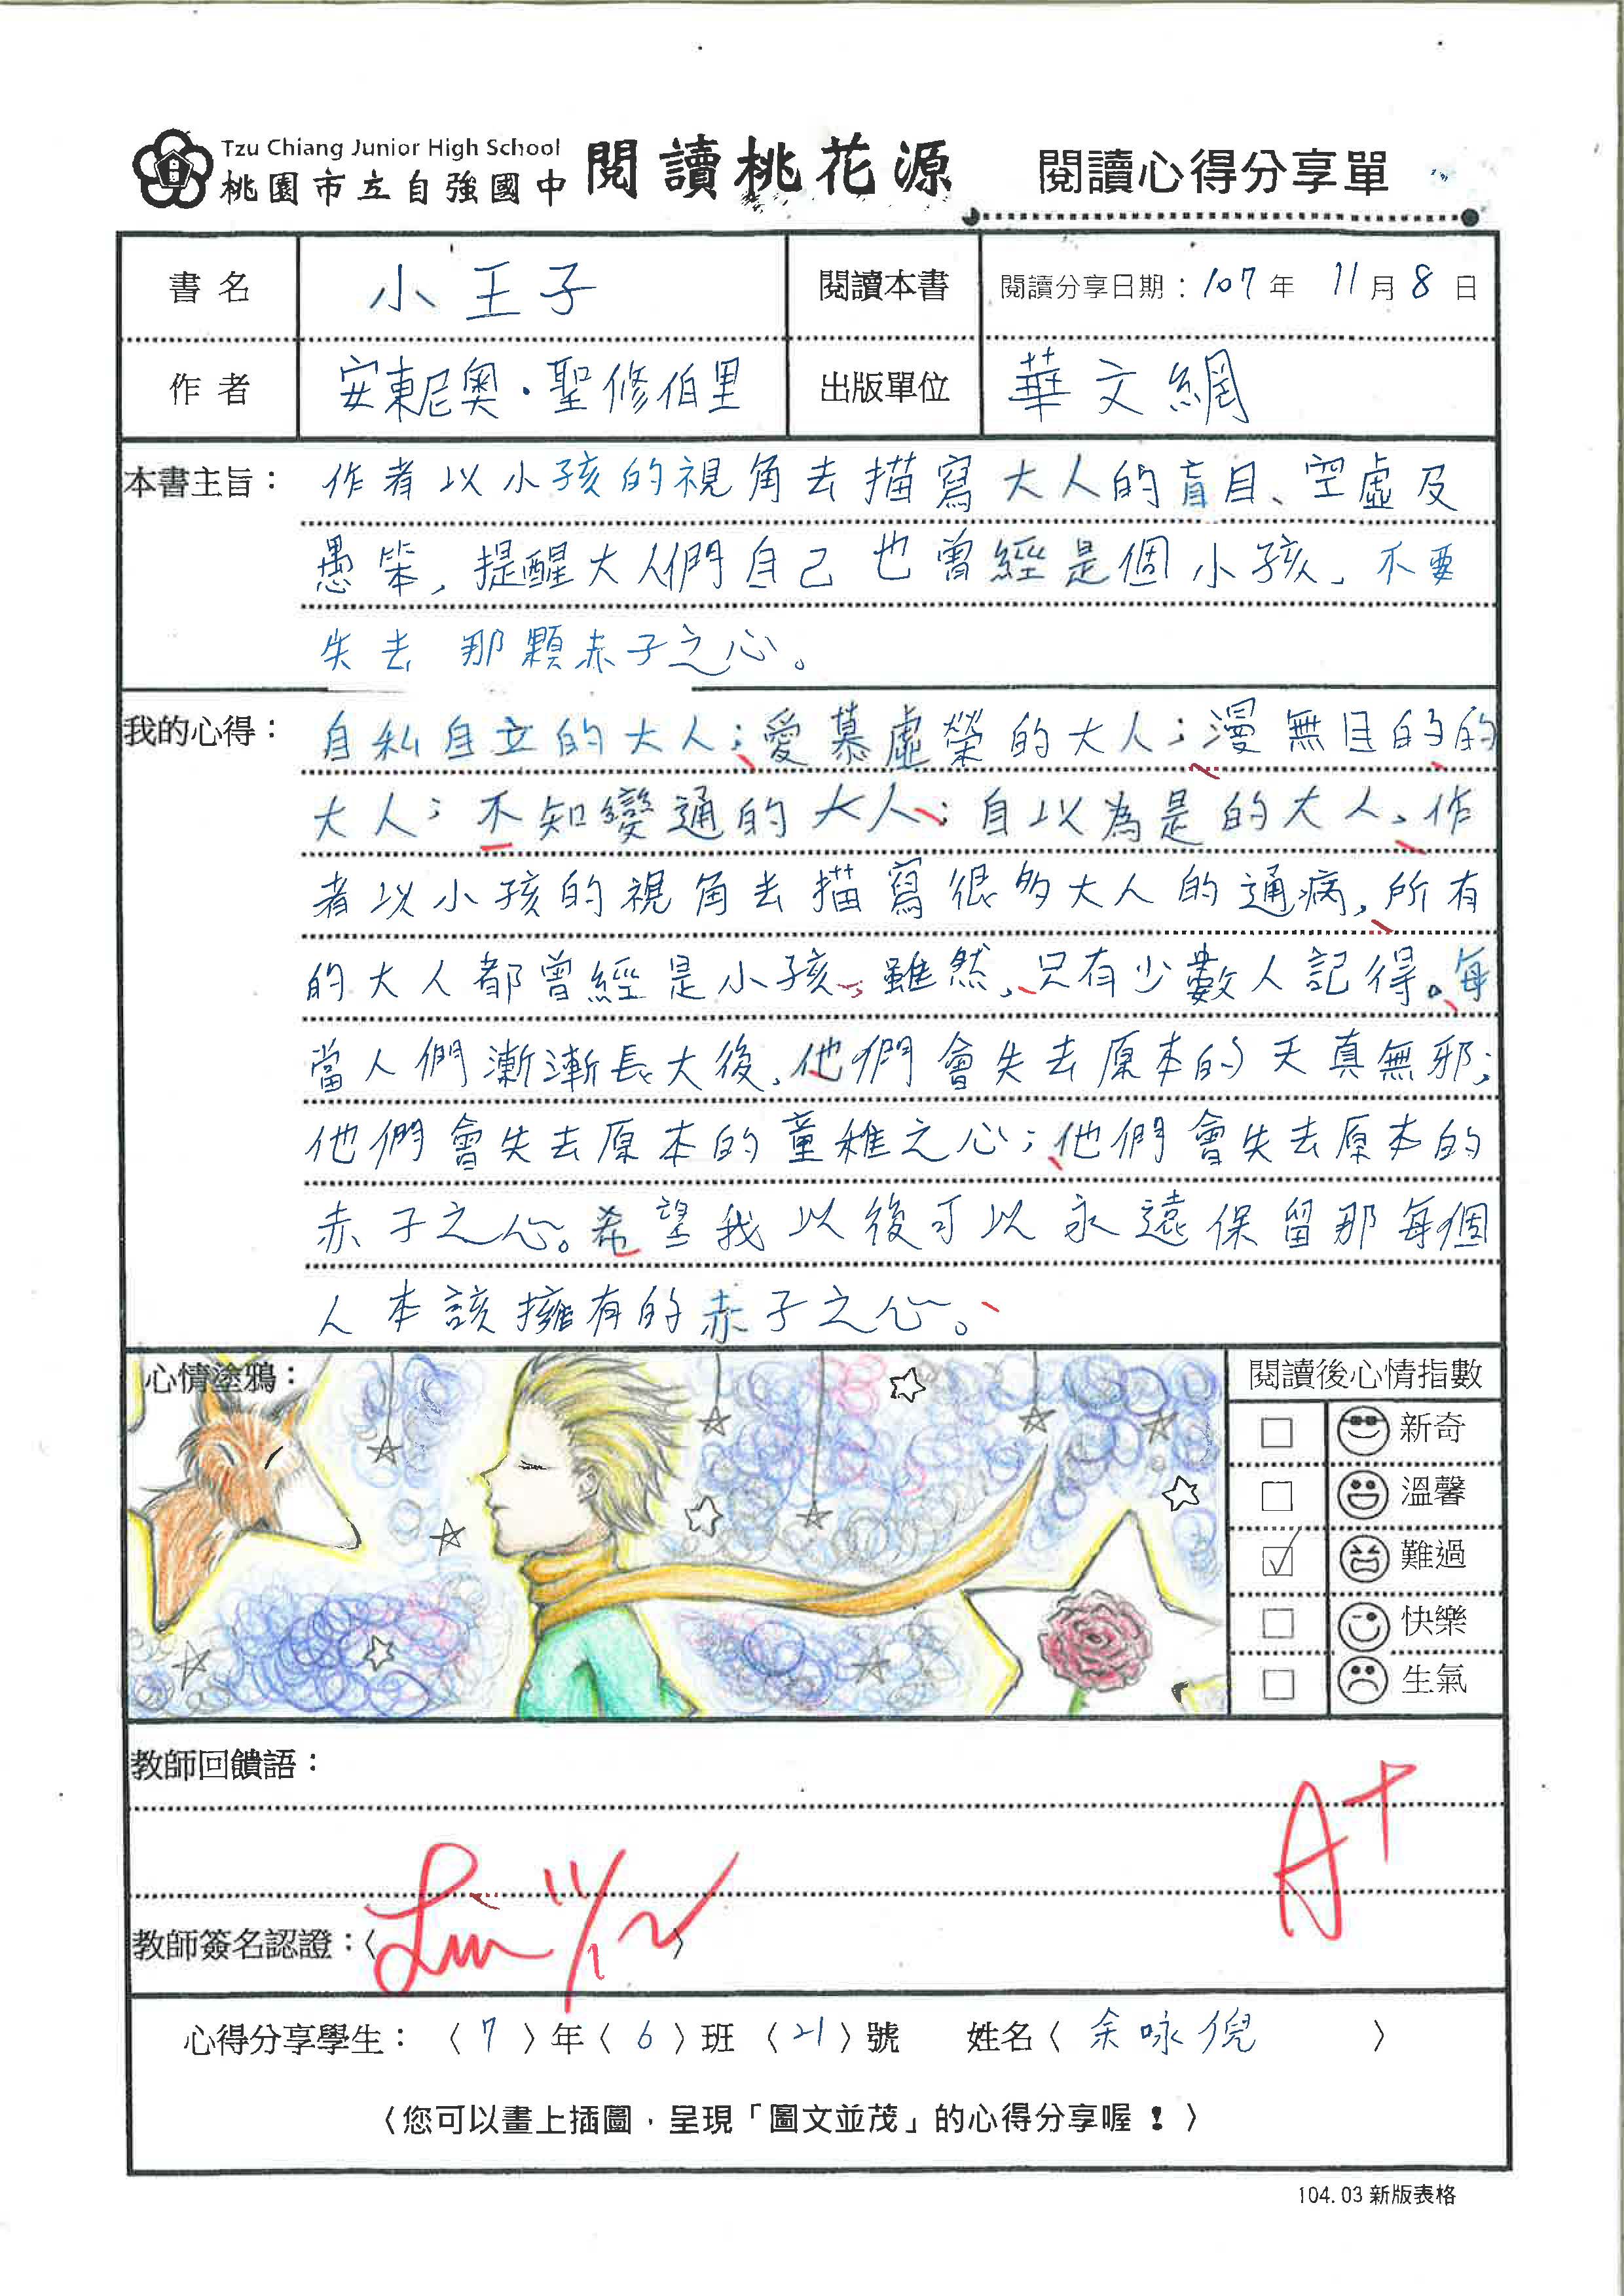 Tzu Chiang Junior High School
桃園市立自強國中 閱讀桃花源 閱讀心得分享單
書名 小王子 閱讀本書 閱讀分享日期：107年 11月8日
作者 安東尼奧·聖修伯里 出版單位 華文網
本書主旨： 作者以小孩的視角去描寫大人的盲目、空虛及
愚笨，提醒大人們自己也曾經是個小孩，不要
失去那顆赤子之心。
我的心得： 自私自立的大人；愛慕虛榮的大人；漫無目的的
大人；不知變通的大人；自以為是的大人、作
者以小孩的視角去描寫很多大人的通病，所有
的大人都曾經是小孩，雖然，只有少數人記得。每
當人們漸漸長大後，他們會失去原本的天真無邪；
他們會失去原本的童稚之心；他們會失去原本的
赤子之心。希望我以後可以永遠保留那每個
人本該擁有的赤子之心。
心情塗鴉：
閱讀後心情指數
新奇
溫馨
✓ 難過
快樂
生氣
教師回饋語：
A+
教師簽名認證：〈 Lin 11/12 〉
心得分享學生：〈7〉年〈6〉班〈21〉號 姓名〈余咏倪〉
〈您可以畫上插圖，呈現「圖文並茂」的心得分享喔！〉
104.03新版表格